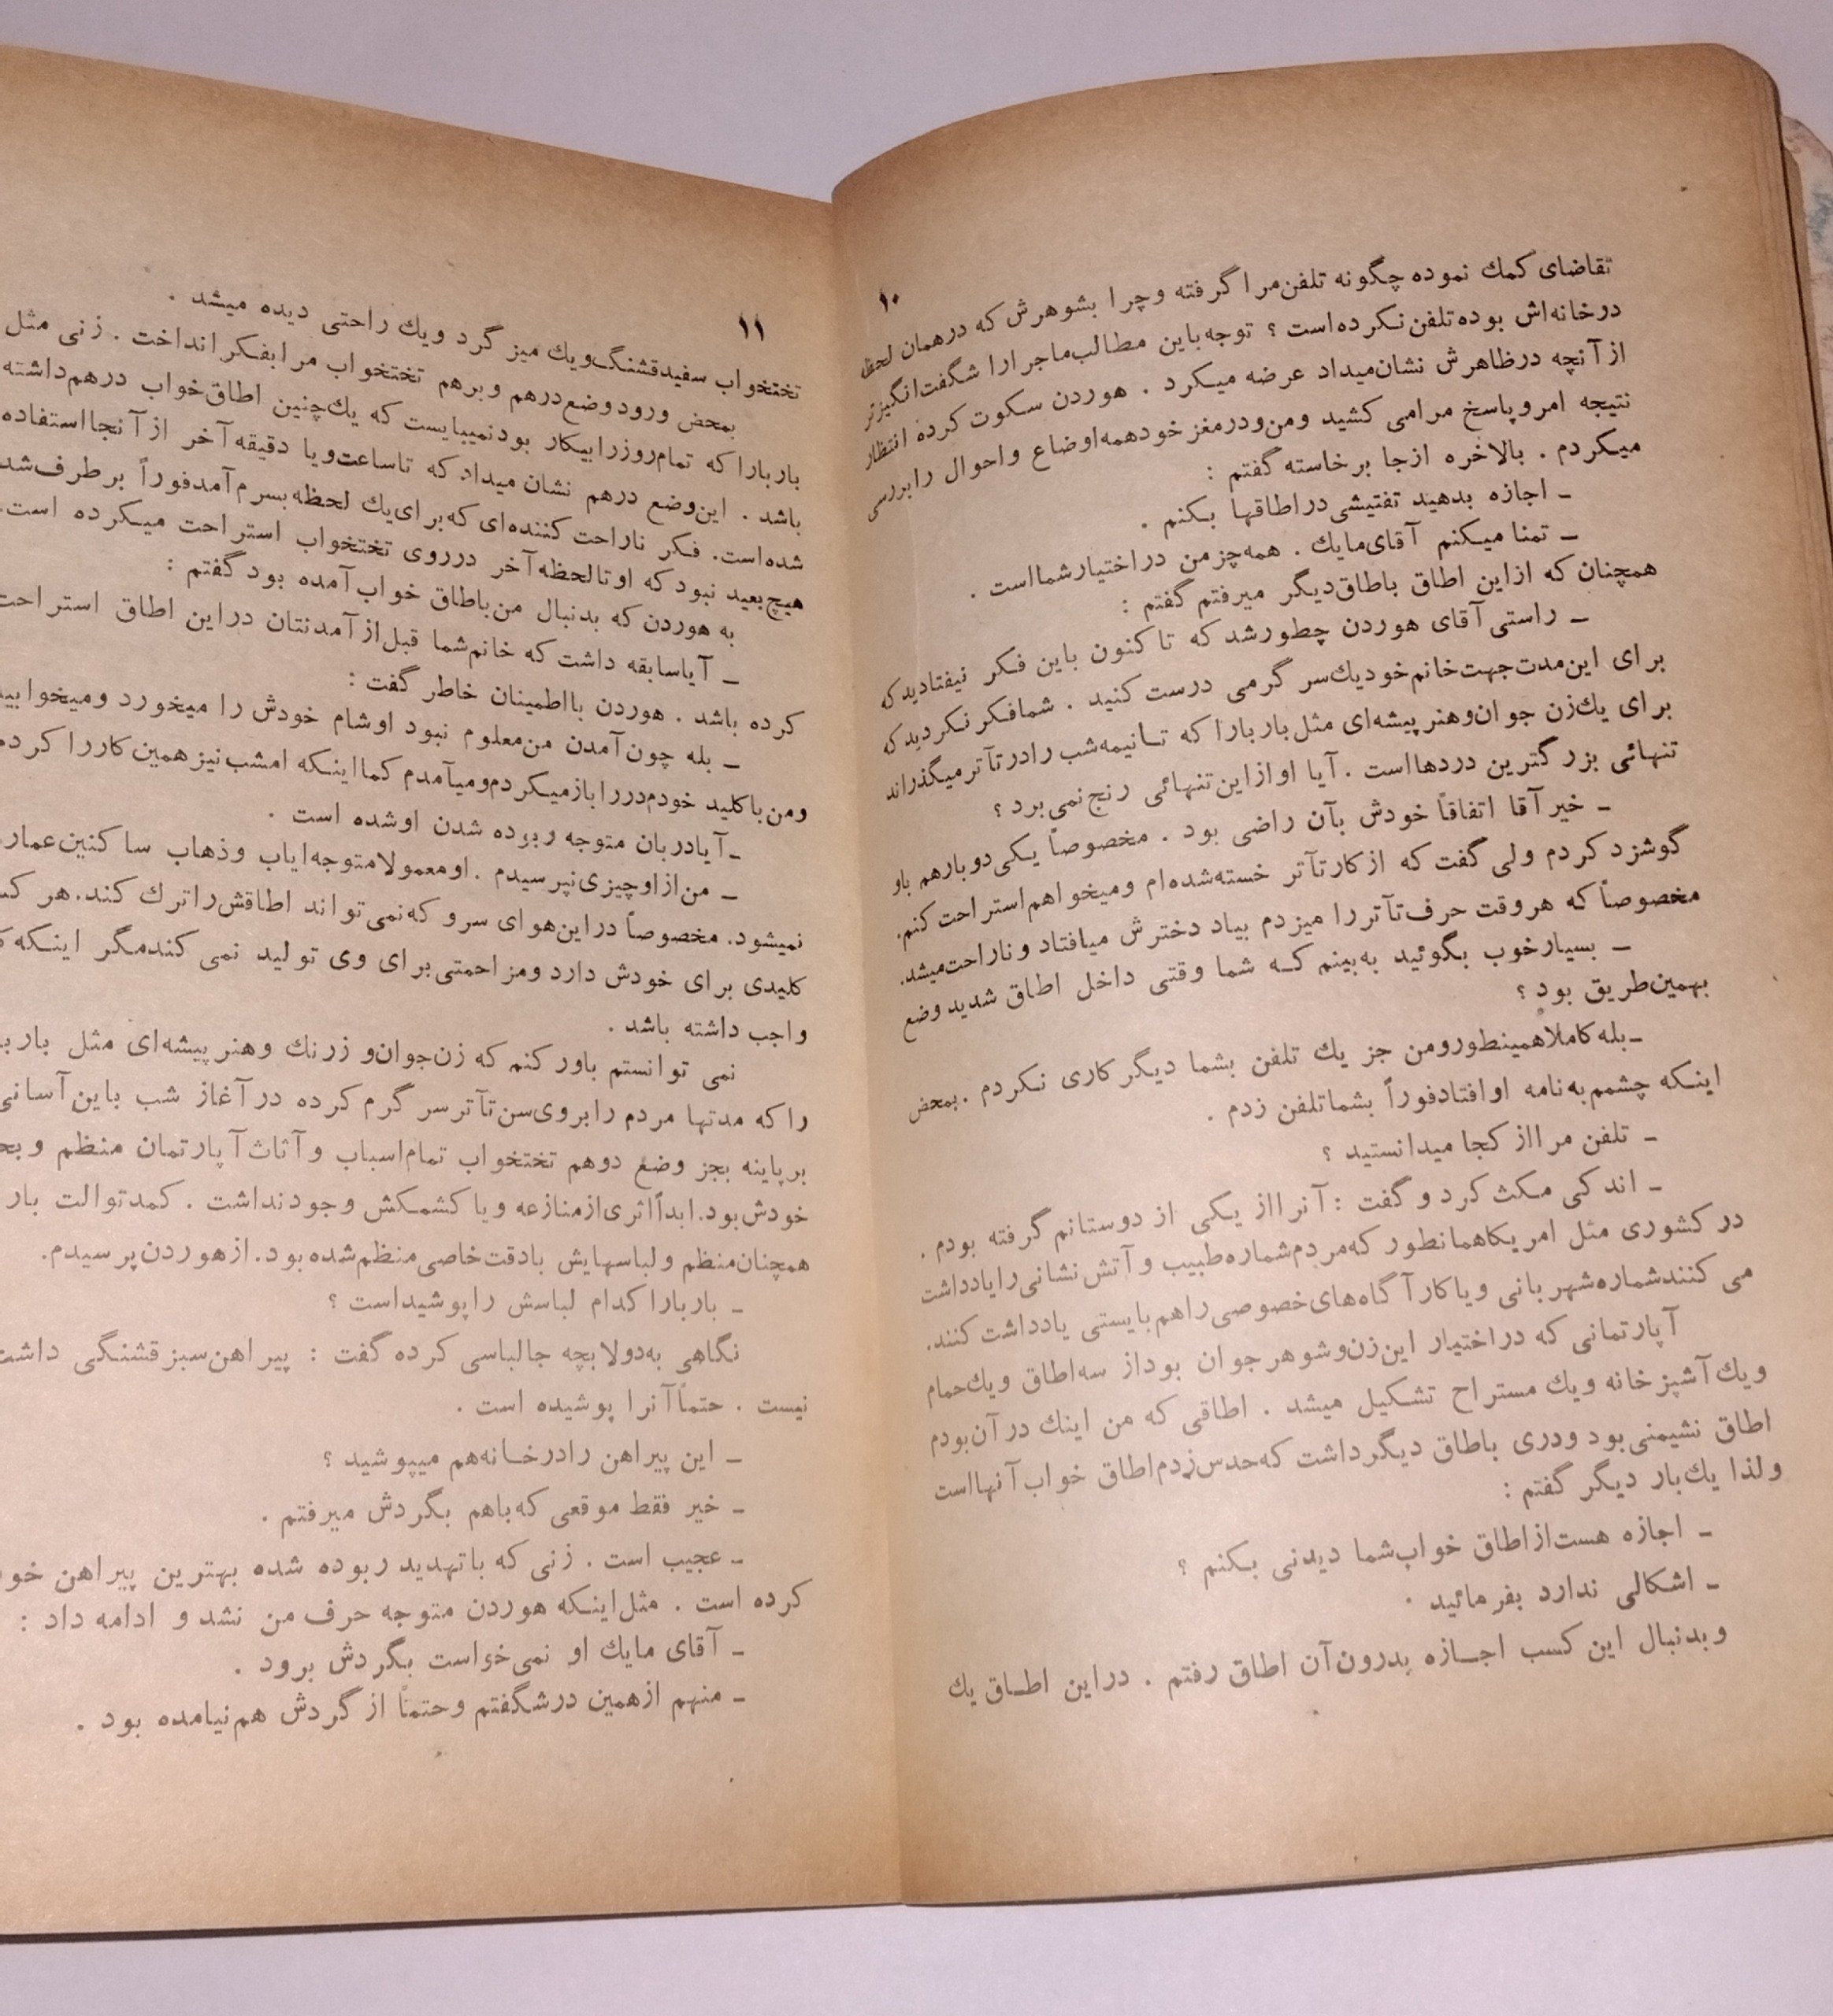 ۱۰
تقاضای کمك نموده چگونه تلفن مرا گرفته وچرا بشوهرش که درهمان لحظه
درخانه‌اش بوده تلفن نکرده است ؟ توجه باین مطالب ماجرارا شگفت‌انگیزتر
ازآنچه درظاهرش نشان میداد عرضه میکرد . هوردن سکوت کرده انتظار
نتیجه امروپاسخ مرامی کشید ومن ودرمغز خودهمه اوضاع واحوال رابررسی
میکردم . بالاخره ازجا برخاسته گفتم :
ـ اجازه بدهید تفتیشی دراطاقها بکنم .
ـ تمنا میکنم آقای مایك . همه چز من دراختیارشمااست .
همچنان که ازاین اطاق باطاق دیگر میرفتم گفتم :
ـ راستی آقای هوردن چطورشد که تاکنون باین فکر نیفتادیدکه
برای این مدت جهت خانم خودیك سر گرمی درست کنید . شمافکر نکردید که
برای یك زن جوان وهنرپیشه‌ای مثل باربارا که تانیمه شب رادرتآترمیگذراند
تنهائی بزرگترین دردهااست . آیا اوازاین تنهائی رنج نمی برد ؟
ـ خیرآقا اتفاقاً خودش بآن راضی بود . مخصوصاً یکی دوبارهم باو
گوشزد کردم ولی گفت که ازکارتآتر خسته شده ام ومیخواهم استراحت کنم.
مخصوصاً که هروقت حرف تآتررا میزدم بیاد دخترش میافتاد وناراحت میشد.
ـ بسیارخوب بگوئید به بینم که شما وقتی داخل اطاق شدید وضع
بهمین طریق بود ؟
ـ بله کاملاهمینطورومن جز یك تلفن بشما دیگرکاری نکردم . بمحض
اینکه چشمم به نامه اوافتادفوراً بشماتلفن زدم .
ـ تلفن مرااز کجا میدانستید ؟
ـ اندکی مکث کرد و گفت : آنرااز یکی از دوستانم گرفته بودم .
در کشوری مثل امریکاهمانطور که مردم شماره طبیب وآتش نشانی رایادداشت
می کنند شماره شهربانی ویاکارآگاه‌های خصوصی راهم بایستی یادداشت کنند.
آپارتمانی که دراختیار این زن وشوهرجوان بوداز سه اطاق ویك حمام
ویك آشپزخانه ویك مستراح تشکیل میشد . اطاقی که من اینك درآن بودم
اطاق نشیمنی بود ودری باطاق دیگرداشت که حدس زدم اطاق خواب آنهااست
ولذا یك بار دیگر گفتم :
ـ اجازه هست ازاطاق خواب شما دیدنی بکنم ؟
ـ اشکالی ندارد بفرمائید .
وبدنبال این کسب اجازه بدرون آن اطاق رفتم . دراین اطاق یك
۱۱
تختخواب سفیدقشنگ ویك میز گرد ویك راحتی دیده میشد .
بمحض ورودوضع درهم وبرهم تختخواب مرابفکرانداخت . زنی مثل
باربارا که تمام روزرابیکار بودنمیبایست که یك چنین اطاق خواب درهم داشته
باشد . این وضع درهم نشان میداد که تاساعت ویا دقیقه آخر ازآنجااستفاده
شده است. فکر ناراحت کننده ای که برای یك لحظه بسرم آمدفوراً برطرف شد
هیچ بعید نبود که اوتالحظه آخر درروی تختخواب استراحت میکرده است.
به هوردن که بدنبال من باطاق خواب آمده بود گفتم :
ـ آیاسابقه داشت که خانم شما قبل ازآمدنتان دراین اطاق استراحت
کرده باشد . هوردن بااطمینان خاطر گفت :
ـ بله چون آمدن من معلوم نبود اوشام خودش را میخورد ومیخوابید
ومن باکلید خودم دررا بازمیکردم ومیآمدم کمااینکه امشب نیزهمین کاررا کردم
ـ آیادربان متوجه ربوده شدن اوشده است .
ـ من ازاوچیزی نپرسیدم . اومعمولامتوجه ایاب وذهاب ساکنین
نمیشود. مخصوصاً دراین هوای سرو که نمی تواند اطاقش راترك کند. هر
کلیدی برای خودش دارد ومزاحمتی برای وی تولید نمی کندمگر اینکه
واجب داشته باشد .
نمی توانستم باور کنم که زن جوان و زرنك وهنرپیشه‌ای مثل
را که مدتها مردم رابروی سن تآترسر گرم کرده درآغاز شب باین آسانی
برپاینه بجز وضع دوهم تختخواب تمام اسباب وآثاث آپارتمان منظم
خودش بود. ابداًاثری ازمنازعه ویا کشمکش وجودنداشت . کمدتوالت بار
همچنان منظم ولباسهایش بادقت خاصی منظم شده بود. ازهوردن پرسیدم.
ـ باربارا کدام لباسش راپوشیداست ؟
نگاهی به دولابچه جالباسی کرده گفت : پیراهن سبزقشنگی داشت
نیست . حتماًآنرا پوشیده است .
ـ این پیراهن رادرخانه هم میپوشید ؟
ـ خیر فقط موقعی که باهم بگردش میرفتم .
ـ عجیب است . زنی که باتهدید ربوده شده بهترین پیراهن
کرده است . مثل اینکه هوردن متوجه حرف من نشد و ادامه داد :
ـ آقای مایك او نمی خواست بگردش برود .
ـ منهم ازهمین درشگفتم وحتماً از گردش هم نیامده بود .